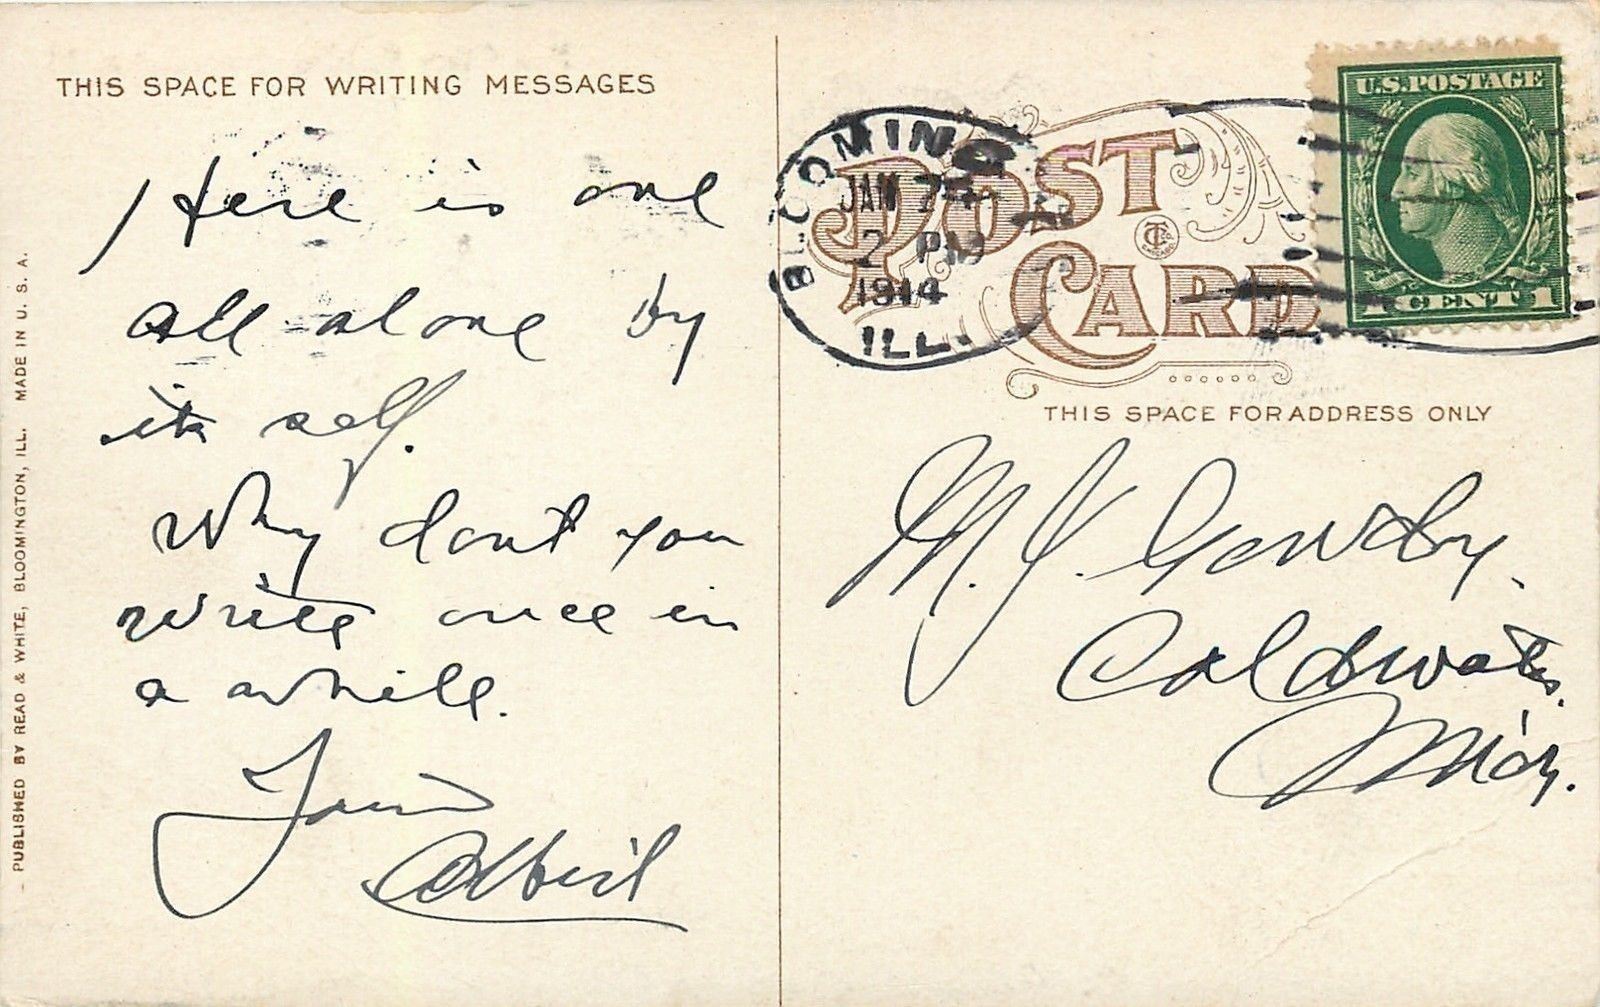 THIS SPACE FOR WRITING MESSAGES
Here is one
all alone by
its self.
Why dont you
write once in
a while.
Yours
Albert
PUBLISHED BY READ & WHITE, BLOOMINGTON, ILL. MADE IN U. S. A.
POST CARD
BLOOMING
JAN 7
2 PM
1914
ILL.
U.S. POSTAGE
1 CENT 1
THIS SPACE FOR ADDRESS ONLY
M. J.
Coldwater.
Mich.